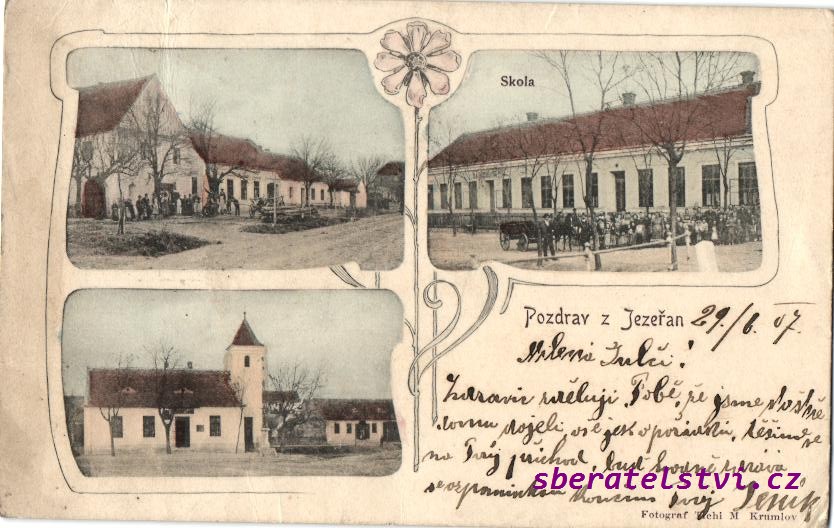 Skola
Pozdrav z Jezeřan 29/6 07.
Milená Julči!
Zdravic sděluji Tobě, že jsme
domu dojeli vše jak v pořádku, těšíme se
na Tvůj příchod, buď hodně zdráva
Tvůj
sberatelstvi.cz
Fotograf Tichi M Krumlov